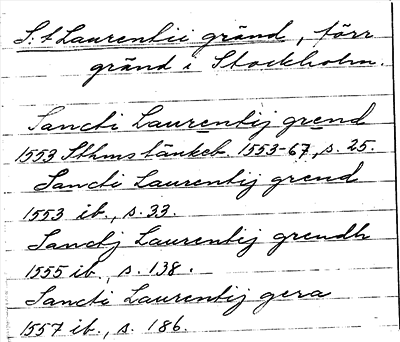 S:t Laurentii gränd, förr
gränd i Stockholm.
Sancti Laurentij grend
1553 Sthms tänkeb. 1553-67, s. 25.
Sancti Laurentij grend
1553 ib., s. 33.
Sanctj Laurentij grendh
1555 ib., s. 138.
Sancti Laurentij gera
1557 ib., s. 186.